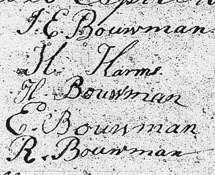 J. E. Bouwman.
H. Harms
H. Bouwman
E. Bouwman
R. Bouwman